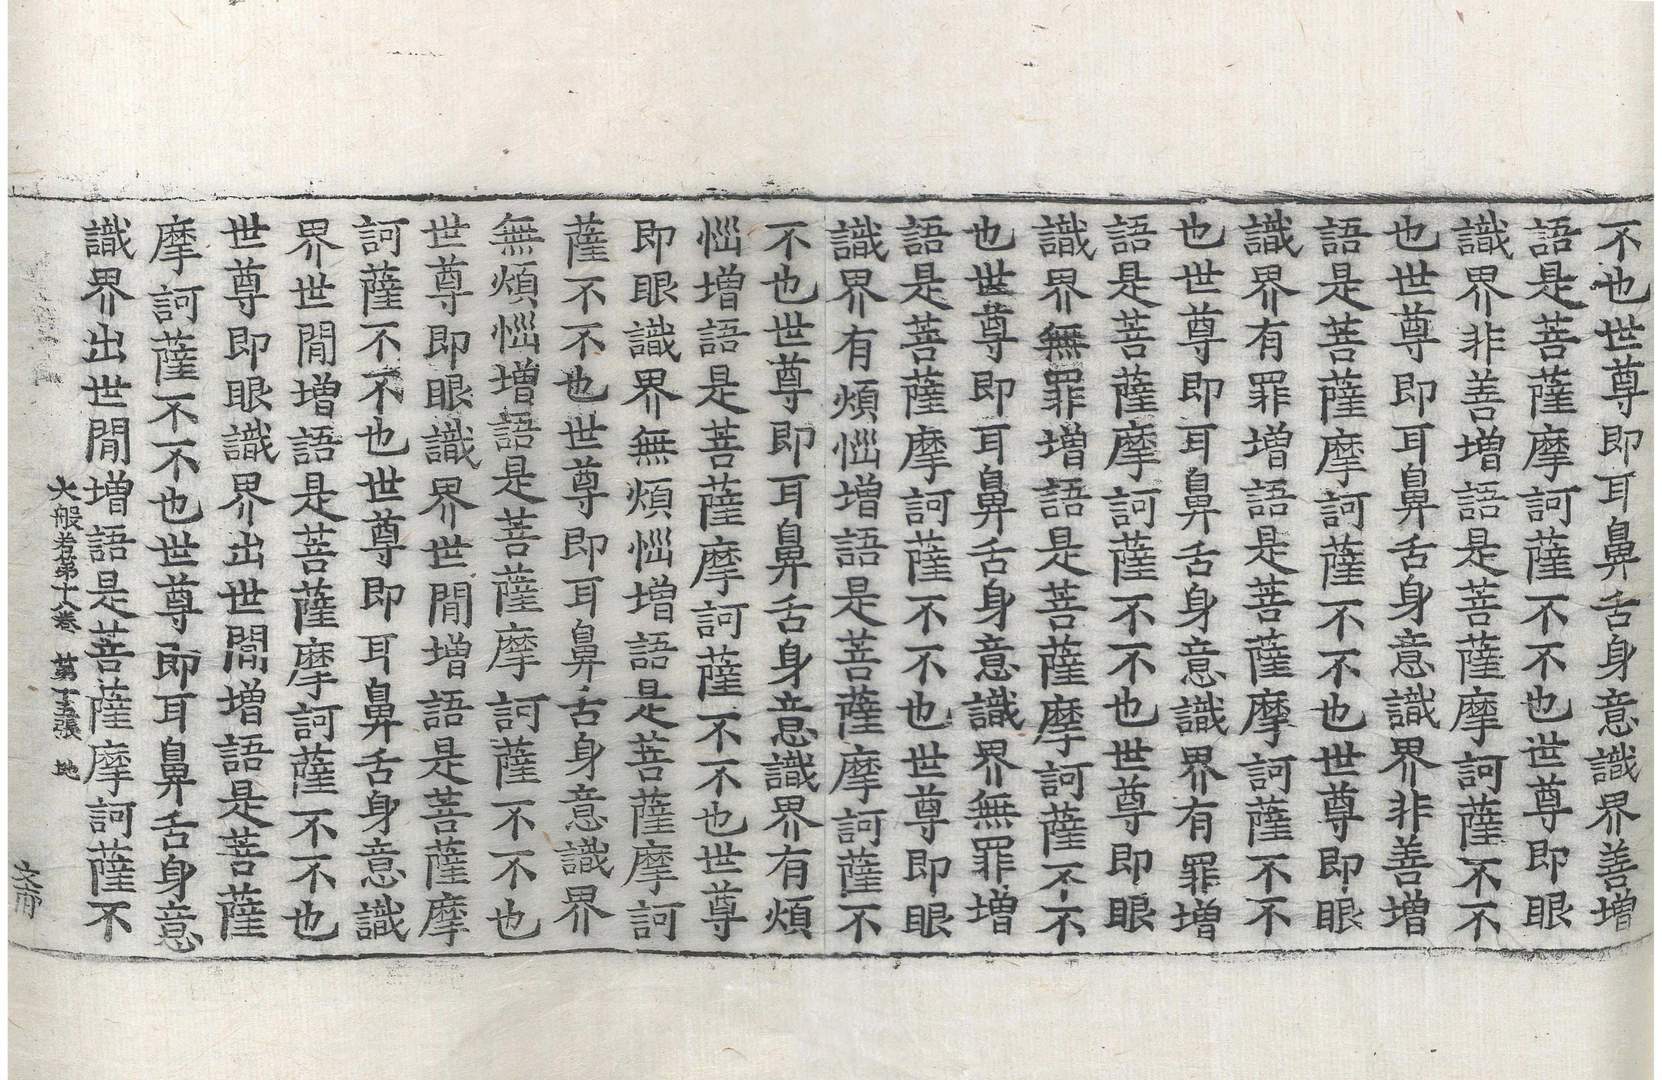 不也世尊即耳鼻舌身意識界善增
語是菩薩摩訶薩不不也世尊即眼
識界非善增語是菩薩摩訶薩不不
也世尊即耳鼻舌身意識界非善增
語是菩薩摩訶薩不不也世尊即眼
識界有罪增語是菩薩摩訶薩不不
也世尊即耳鼻舌身意識界有罪增
語是菩薩摩訶薩不不也世尊即眼
識界無罪增語是菩薩摩訶薩不不
也世尊即耳鼻舌身意識界無罪增
語是菩薩摩訶薩不不也世尊即眼
識界有煩惱增語是菩薩摩訶薩不
不也世尊即耳鼻舌身意識界有煩
惱增語是菩薩摩訶薩不不也世尊
即眼識界無煩惱增語是菩薩摩訶
薩不不也世尊即耳鼻舌身意識界
無煩惱增語是菩薩摩訶薩不不也
世尊即眼識界世閒增語是菩薩摩
訶薩不不也世尊即耳鼻舌身意識
界世閒增語是菩薩摩訶薩不不也
世尊即眼識界出世閒增語是菩薩
摩訶薩不不也世尊即耳鼻舌身意
識界出世閒增語是菩薩摩訶薩不
大般若第十八卷 第十五張 地